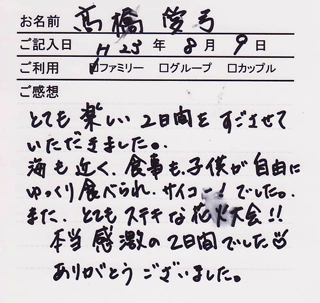 お名前 髙橋 愛弓
ご記入日 H 23 年 8 月 9 日
ご利用 ☑ファミリー □グループ □カップル
ご感想
とても楽しい2日間をすごさせて
いただきました。
海も近く、食事も、子供が自由に
ゆっくり食べられ、サイコーでした。
また、とてもステキな花火大会!!
本当感激の2日間でした
ありがとうございました。